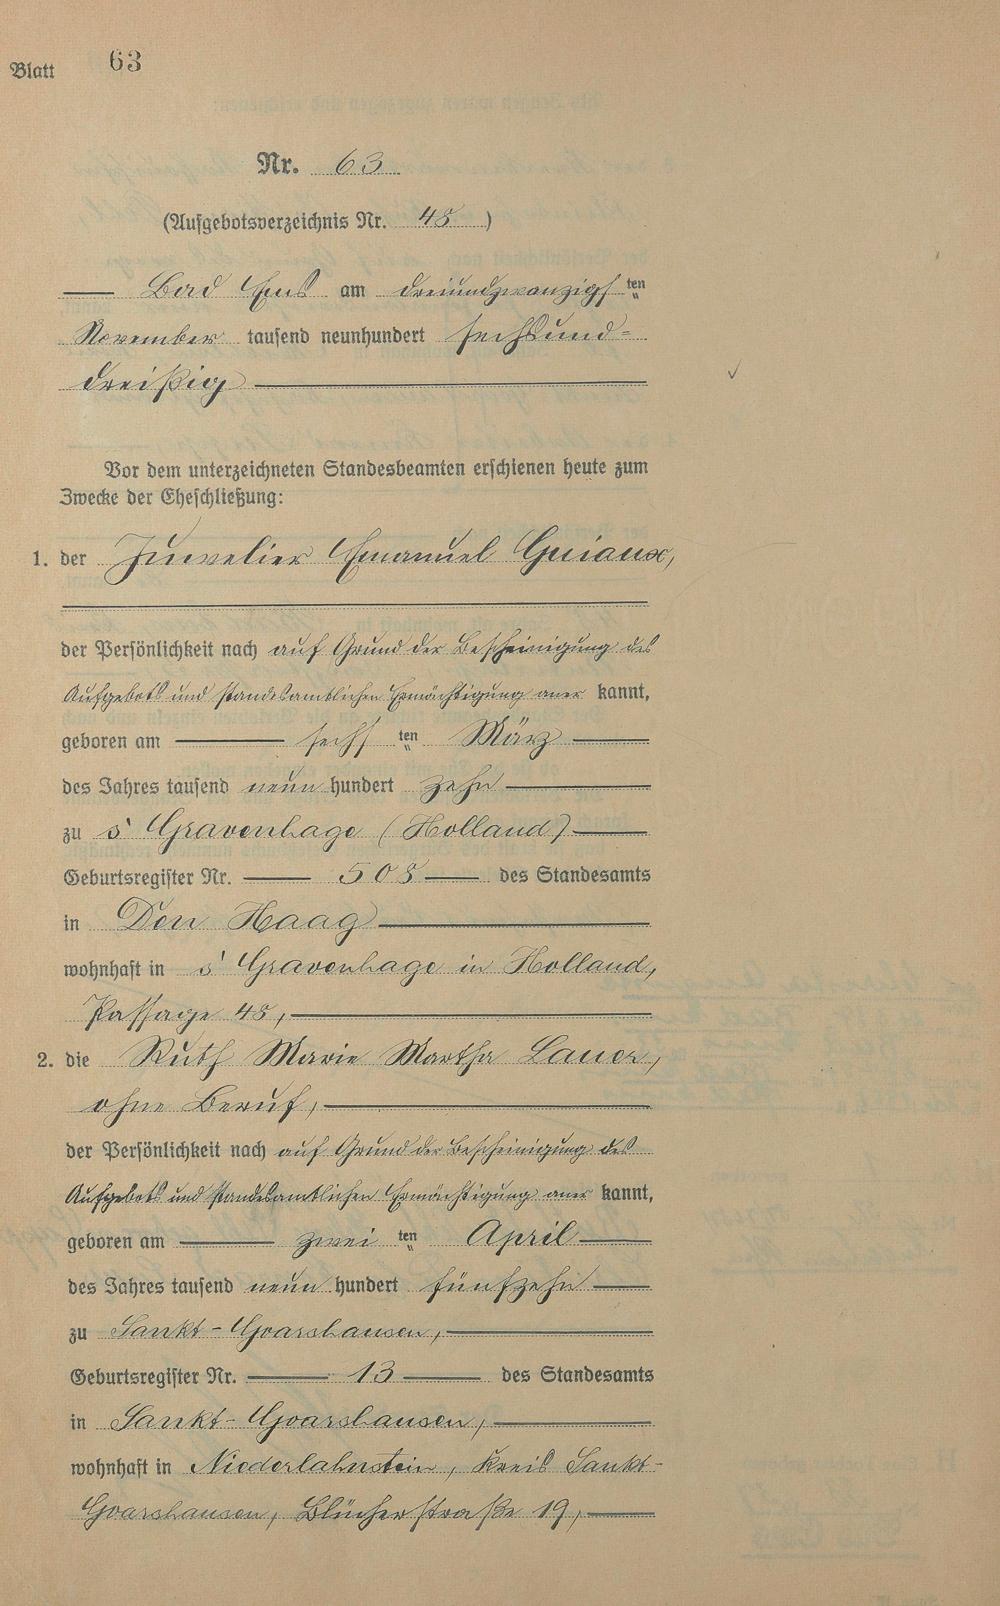 Blatt 63
Nr. 63
(Aufgebotsverzeichnis Nr. 48)
Bad Ems am dreiundzwanzigsten
November tausend neunhundert sechsund-
dreißig
Vor dem unterzeichneten Standesbeamten erschienen heute zum
Zwecke der Eheschließung:
1. der Juwelier Emanuel Guiaux,
der Persönlichkeit nach auf Grund der Bescheinigung des
Aufgebots und standesamtlichen Ermächtigung aner kannt,
geboren am sechsten März
des Jahres tausend neun hundert zehn
zu s' Gravenhage (Holland)
Geburtsregister Nr. 508 des Standesamts
in Den Haag
wohnhaft in s' Gravenhage in Holland,
Passage 48,
2. die Ruth Marie Martha Lauer,
ohne Beruf,
der Persönlichkeit nach auf Grund der Bescheinigung des
Aufgebots und standesamtlichen Ermächtigung aner kannt,
geboren am zweiten April
des Jahres tausend neun hundert fünfzehn
zu Sankt-Goarshausen,
Geburtsregister Nr. 13 des Standesamts
in Sankt-Goarshausen,
wohnhaft in Niederlahnstein, Kreis Sankt-
Goarshausen, Blücherstraße 19,